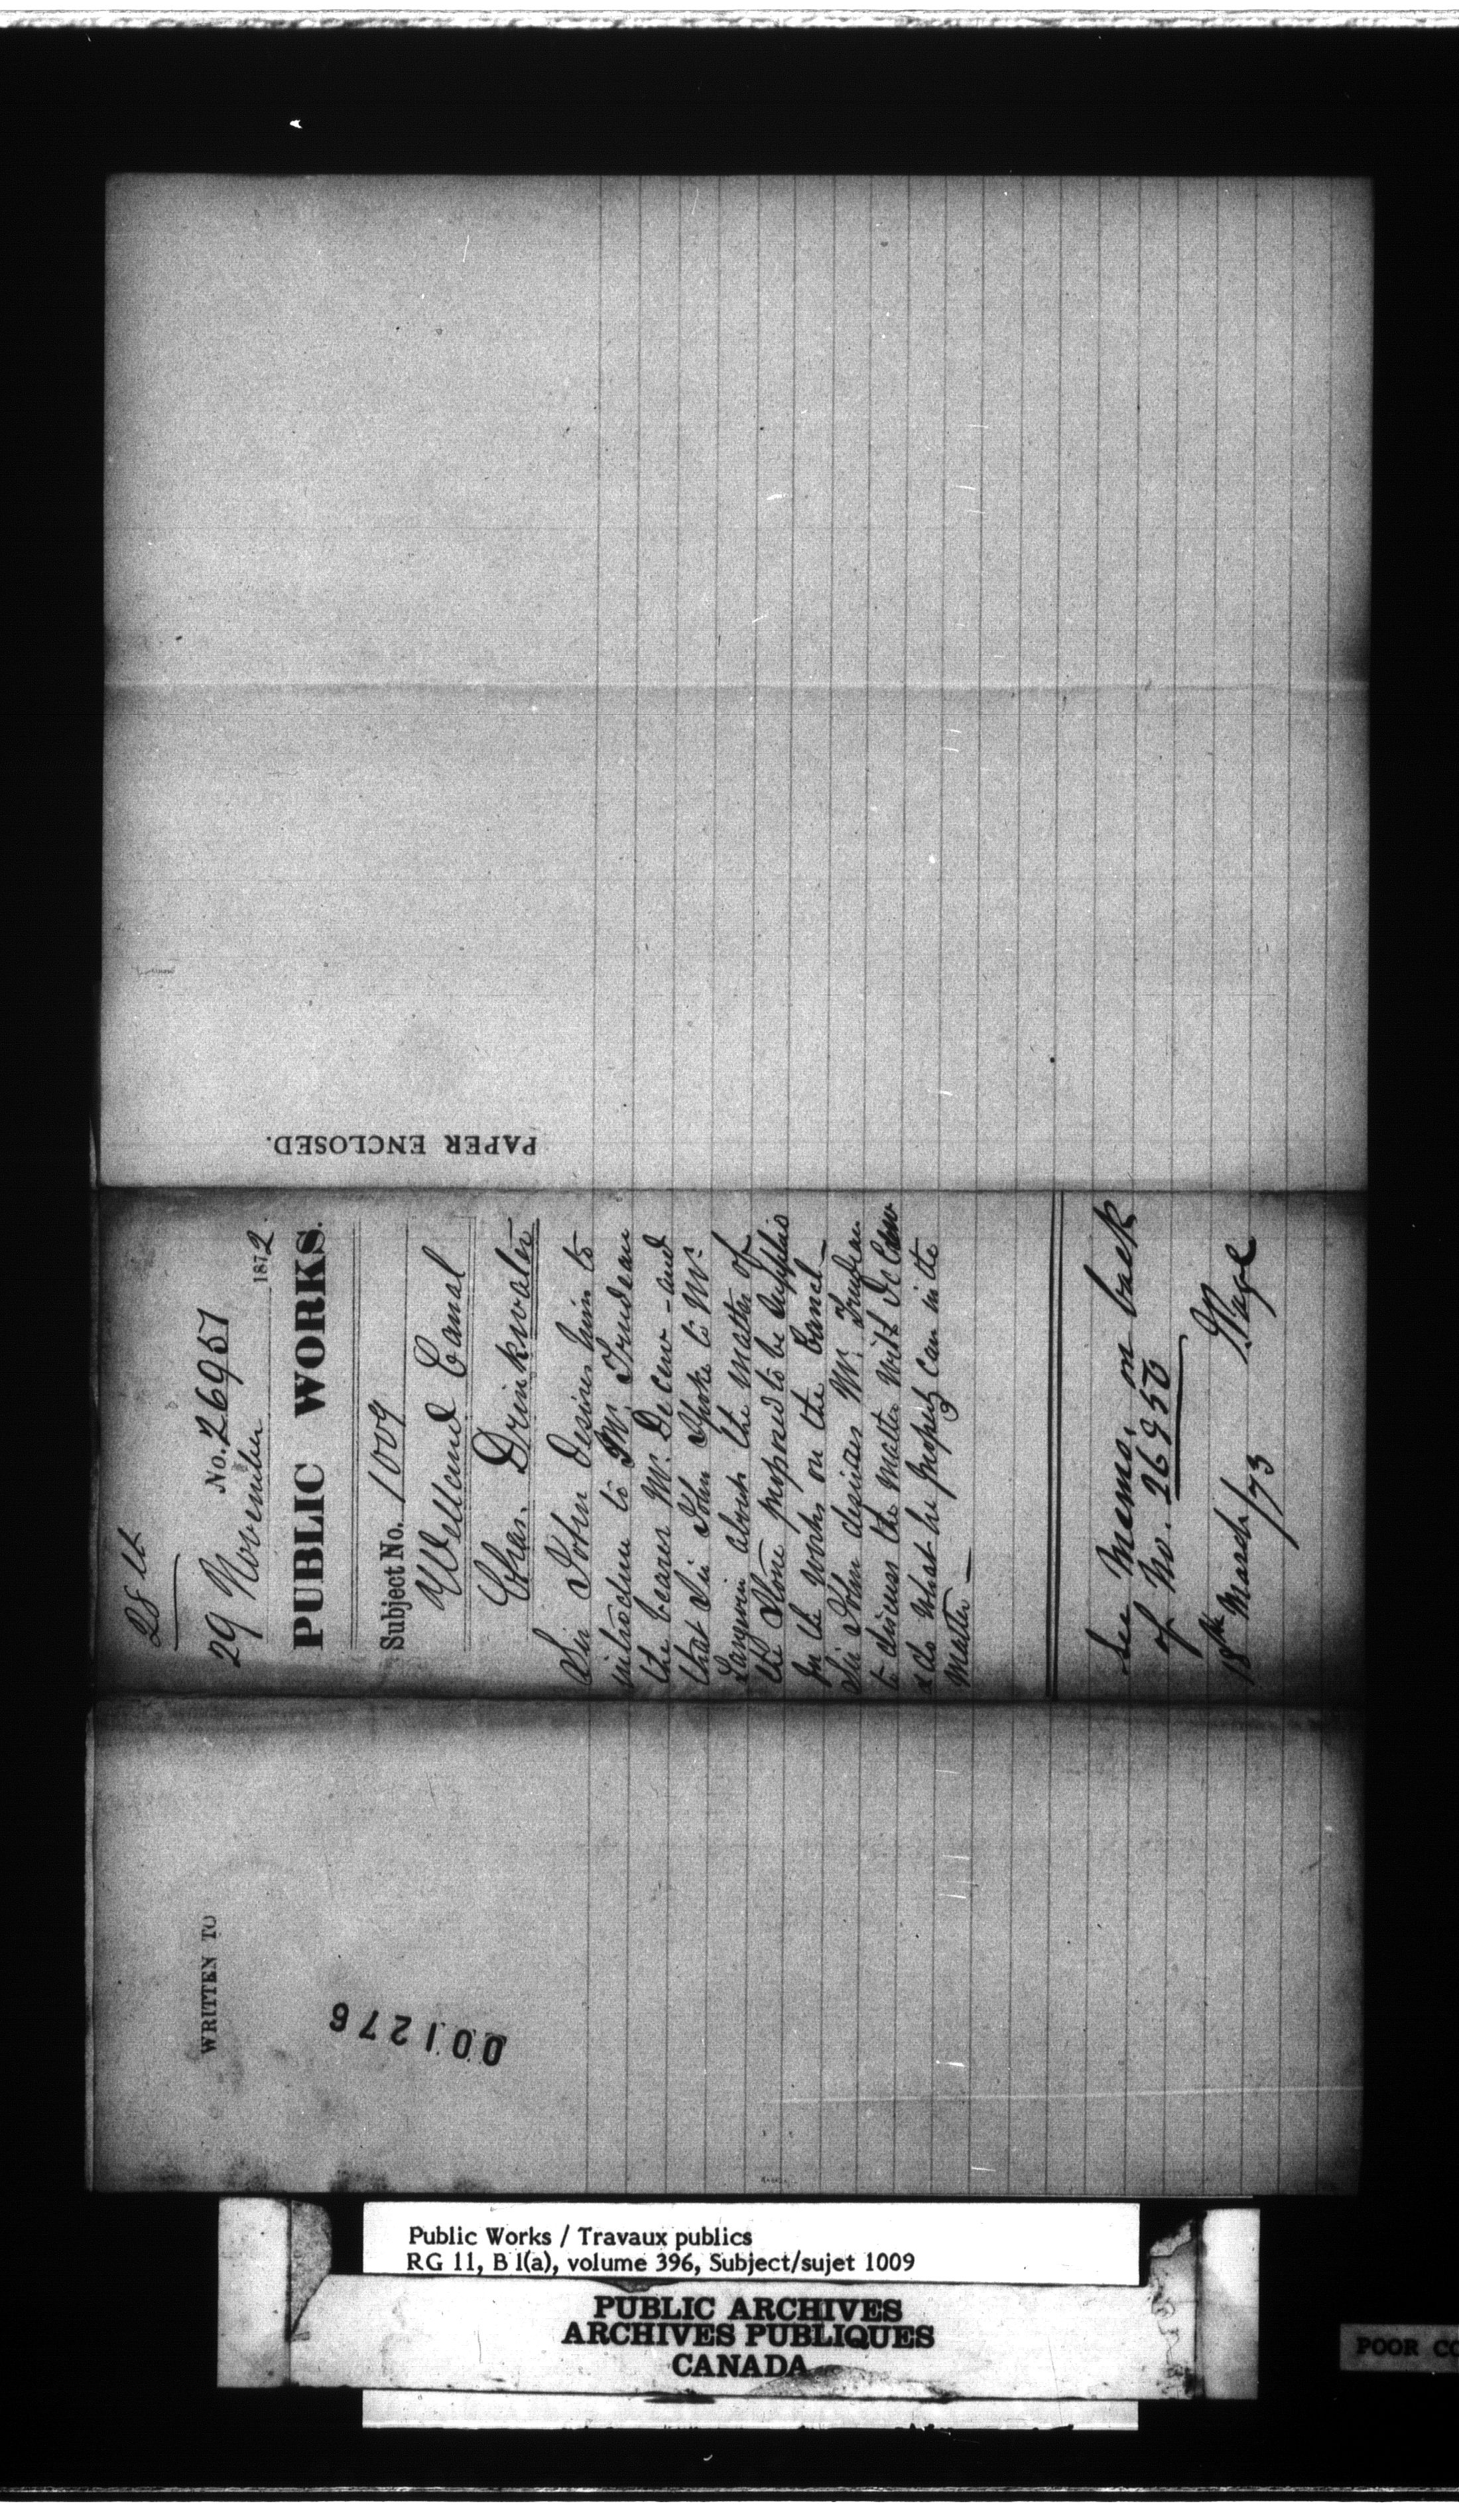 PAPER ENCLOSED.
28th
No. 26951
29 November 1872
PUBLIC WORKS.
Subject No. 1009
Welland Canal
Chas. Drinkwater
Sir John desires him to
introduce to Mr. Trudeau
the bearer Mr. Decew - and
that Sir John spoke to Mr.
Langevin about the matter of
the Stone proposed to be supplied
for the Works on the Canal -
Sir John desires Mr. Trudeau
to discuss the matter with Decew
& do what he properly can in the
matter -
See Memo. on back
of No. 26950
18th March /73 Page
WRITTEN TO
001276
Public Works / Travaux publics
RG 11, B 1(a), volume 396, Subject/sujet 1009
PUBLIC ARCHIVES
ARCHIVES PUBLIQUES
CANADA
POOR CO